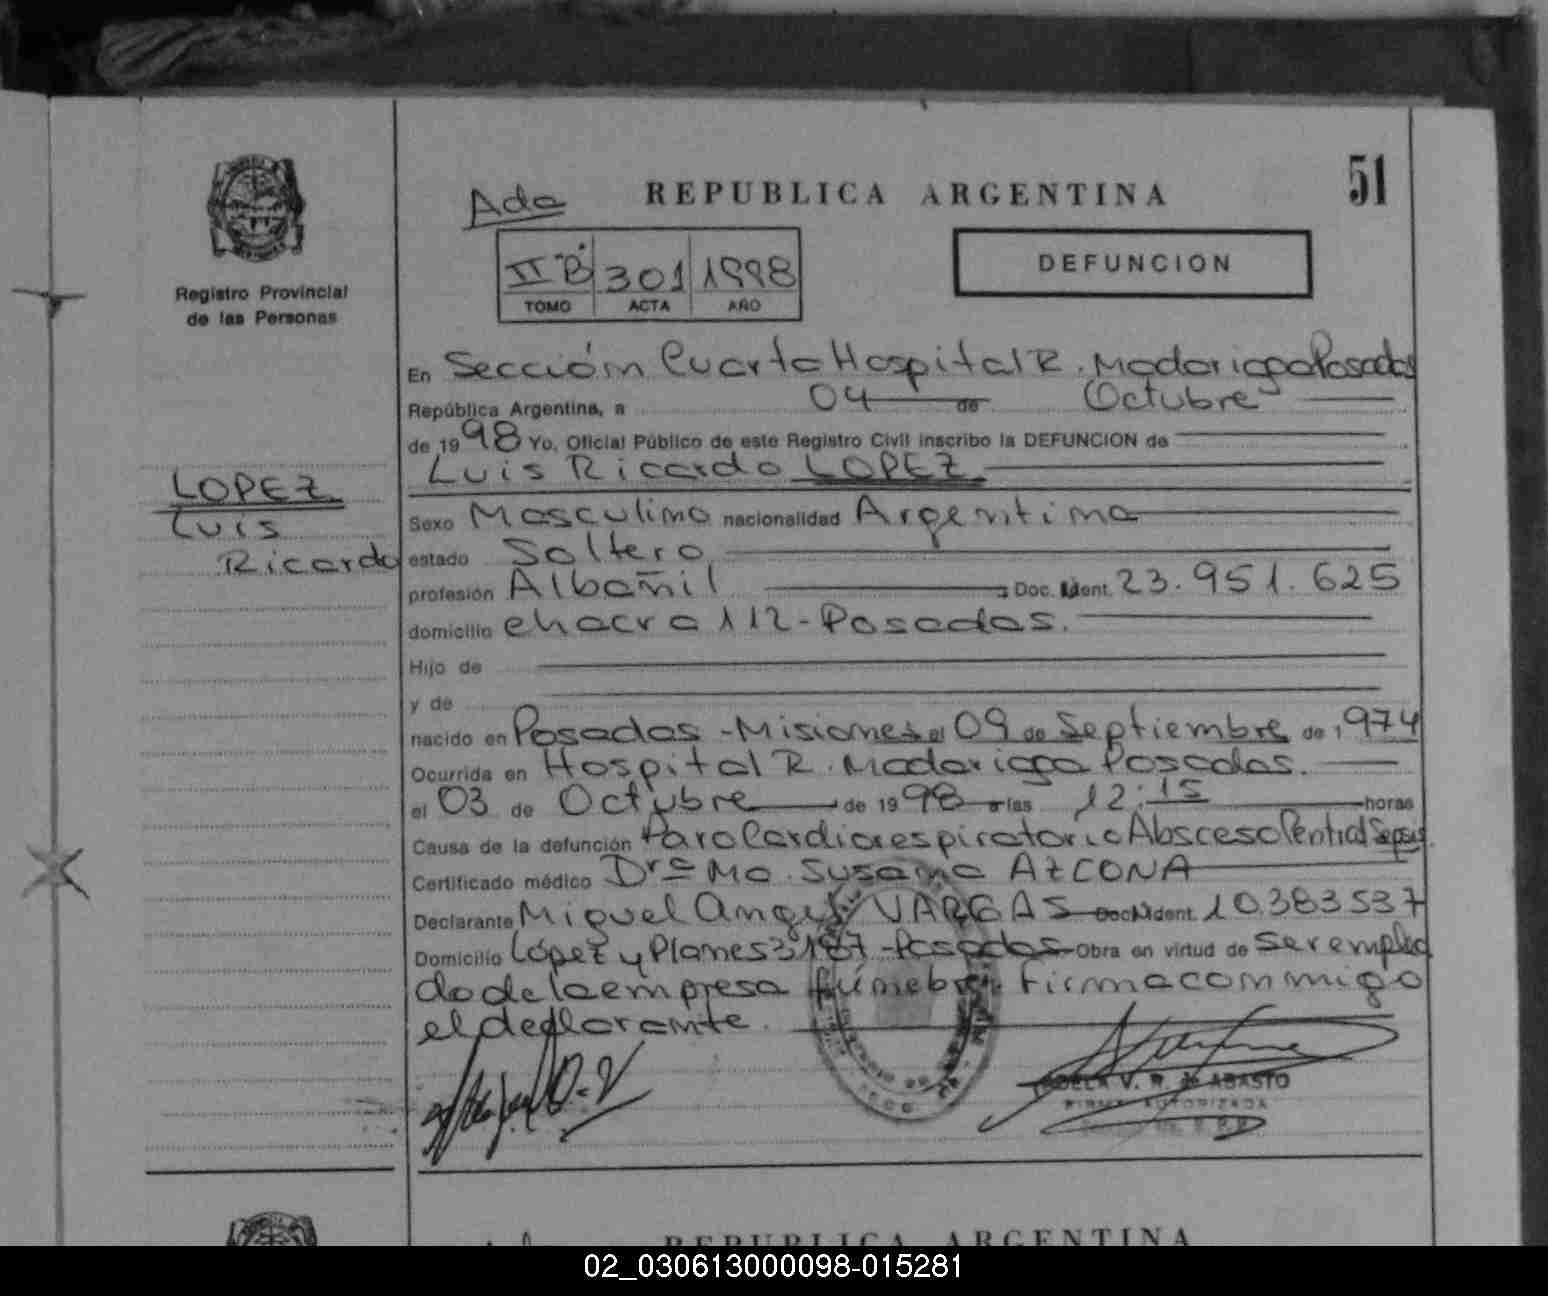 51
Ada
REPUBLICA ARGENTINA
II "B" 301 1998
TOMO ACTA AÑO
DEFUNCION
Registro Provincial
de las Personas
LOPEZ
Luis
Ricardo
En Sección Cuarta Hospital R. Madariaga Posadas
República Argentina, a 04 de Octubre
de 1998 Yo, Oficial Público de este Registro Civil inscribo la DEFUNCION de
Luis Ricardo LOPEZ
Sexo Masculino nacionalidad Argentina
estado Soltero
profesión Albañil Doc. Ident. 23.951.625
domicilio chacra 112 - Posadas.
Hijo de
y de
nacido en Posadas - Misiones el 09 de Septiembre de 1974
Ocurrida en Hospital R. Madariaga Posadas.
el 03 de Octubre de 1998 a las 12:15 horas
Causa de la defunción Paro Cardiorespiratorio Absceso Sepsis.
Certificado médico Drª Ma. Susana AZCONA
Declarante Miguel Angel VARGAS Doc. Ident. 10.383.537
Domicilio López y Planes 3187 - Posadas Obra en virtud de ser emplea
do de la empresa fúnebre. Firma conmigo
el declarante.
V. R. de ABASTO
FIRMA AUTORIZADA
REPUBLICA ARGENTINA
02_030613000098-015281